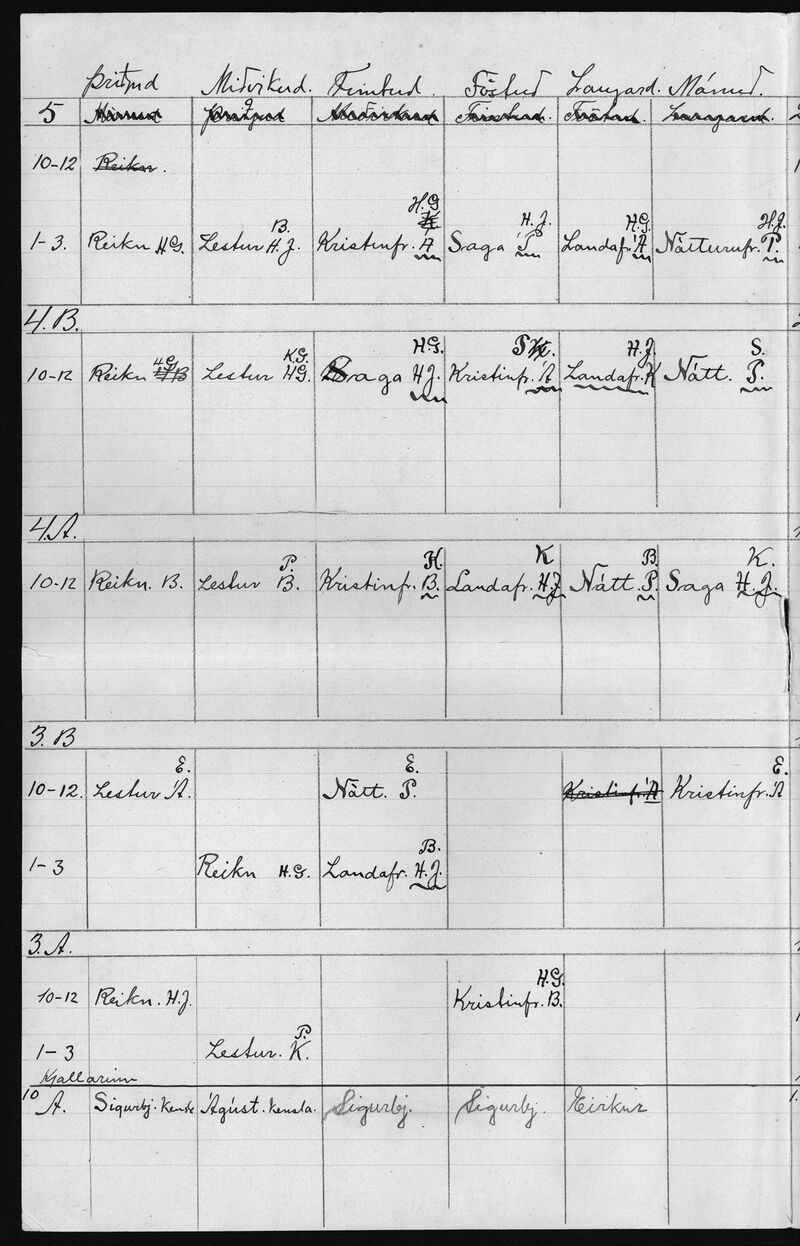 þritjud Miðvikud. Fimtud. Föstud Laugard. Mánud.
5
10-12 Reikn.
H.G
B. H.J. H.G. H.J.
1-3. Reikn H.G. Lestur H.J. Kristinfr. Á Saga P Landafr. Á Nátturufr. P.
4.B.
K.G. H.G. P H.J. S.
10-12 Reikn Lestur H.G. Saga H.J. Kristinfr. Á Landafr. K Nátt. P.
4.A.
P. H. K B. K.
10-12 Reikn. B. Lestur B. Kristinfr. B. Landafr. H.J. Nátt. P. Saga H.J.
3.B
E. E. E.
10-12. Lestur Á. Nátt. P. Kristinfr. Á Kristinfr. Á
B.
1-3 Reikn H.G. Landafr. H.J.
3.A.
H.G.
10-12 Reikn. H.J. Kristinfr. B.
P.
1-3 Lestur. K.
Kjallarinn
10
A. Sigurbj. Kensla Ágúst. Kensla. Sigurbj. Sigurbj. Eirikur